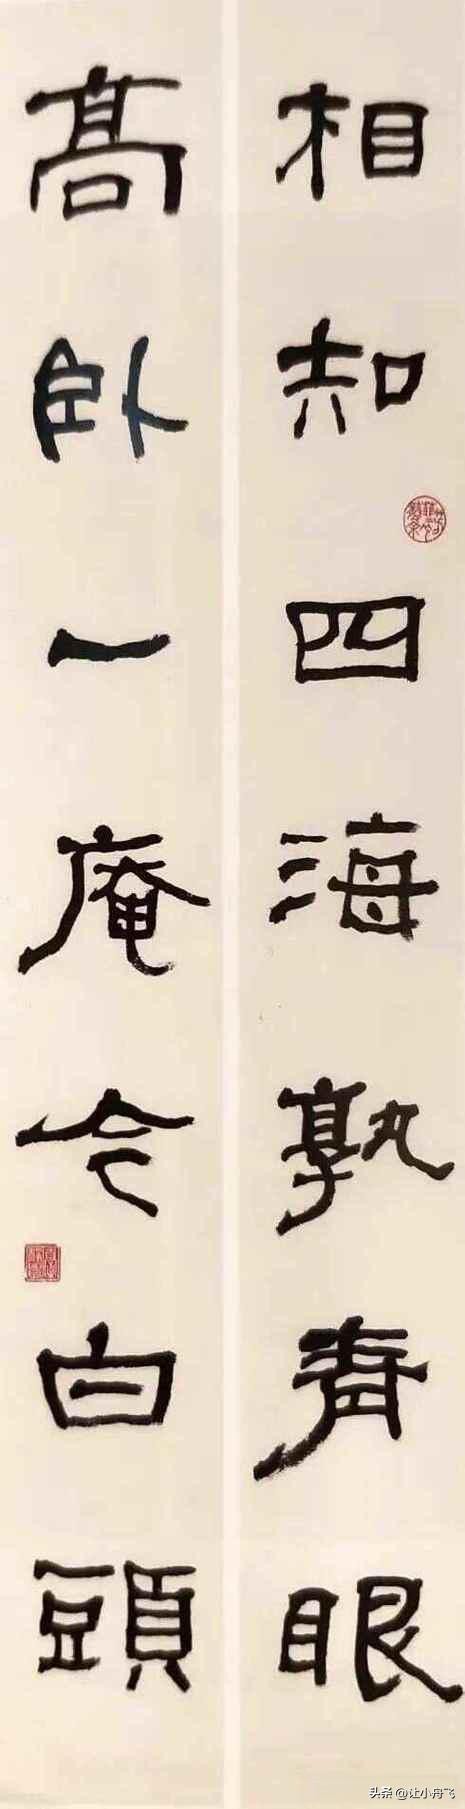 相知四海孰青眼
高卧一庵今白頭
头条 @让小舟飞